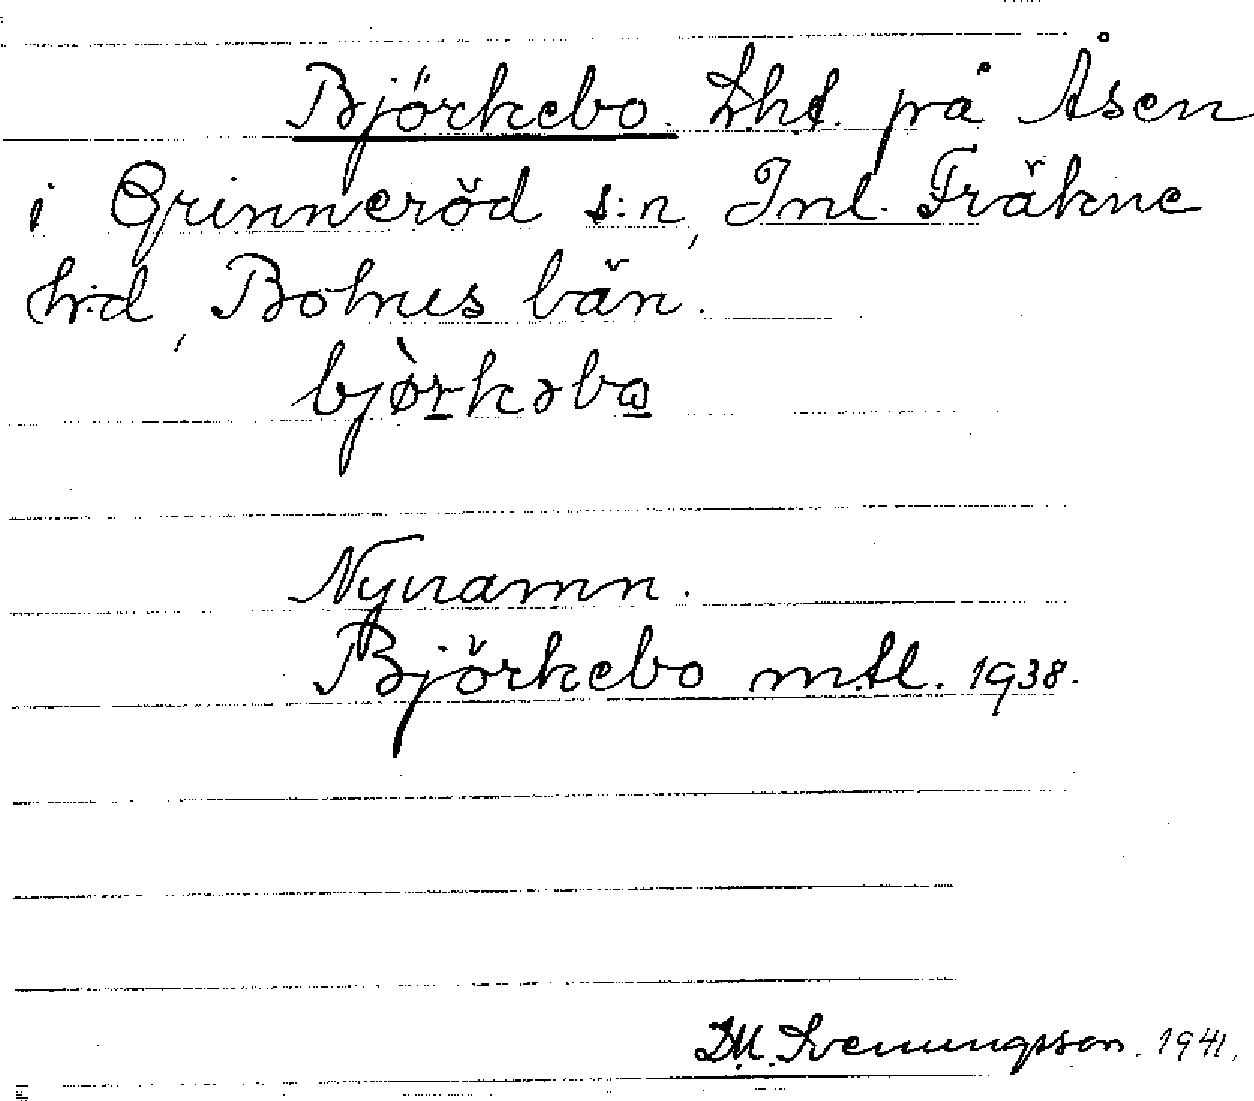 Björkebo. Lht. på Åsen
i Grinneröd s:n, Inl. Fräkne
h:d, Bohus län.
bjø̀rkəbω
Nynamn.
Björkebo mtl. 1938.
D.M. Svenungsson. 1941.